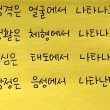 격은 얼굴에서 나타나
활은 체형에서 나타나
심은 태도에서 나타나
정은 음성에서 나타난